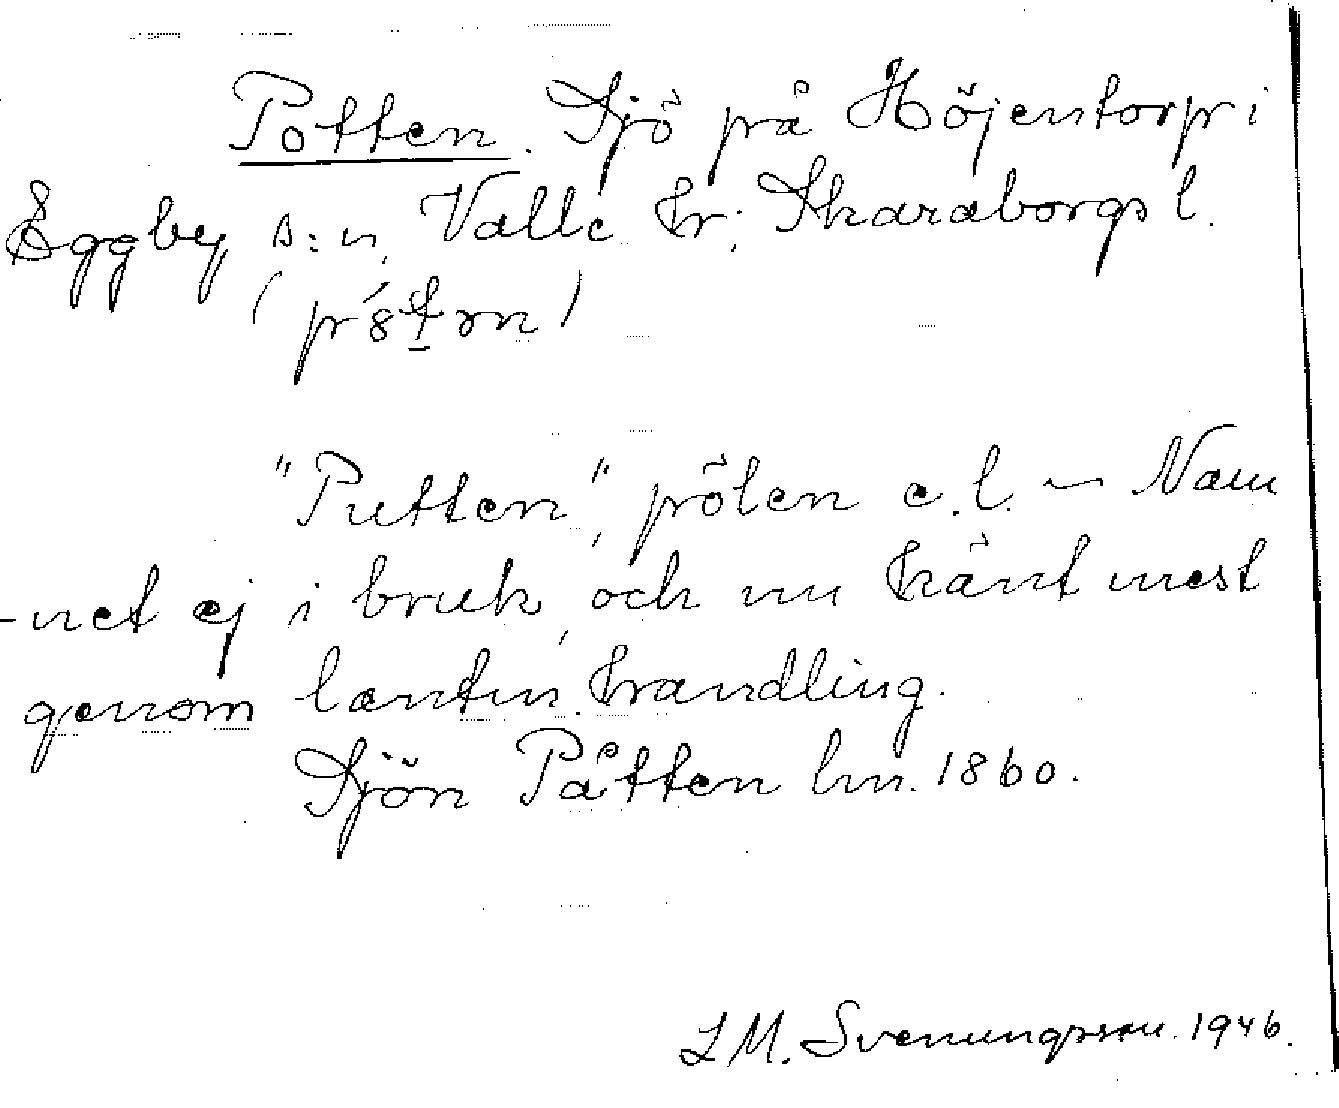 Potten. Sjö på Höjentorp i
Eggby s:n, Valle hr; Skaraborgs l.
"Putten", pölen e.l. — Nam
-net ej i bruk, och nu känt mest
genom lantm. handling.
Sjön Påtten lm. 1860.
L M. Svenungsson. 1946.